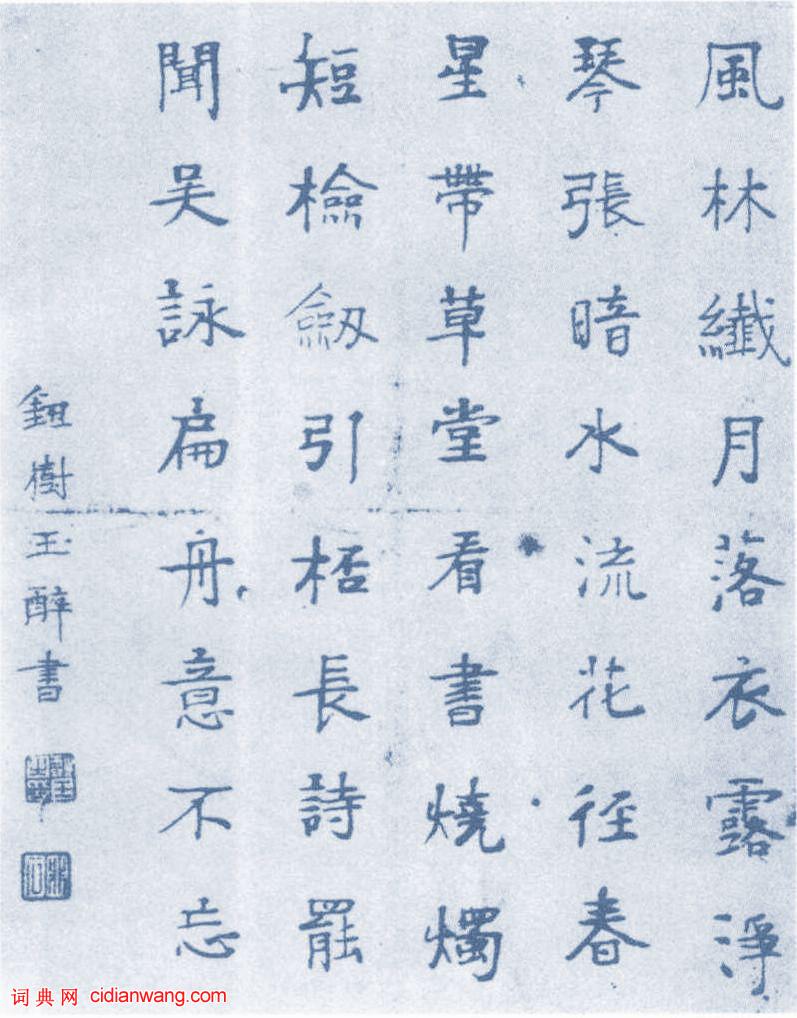 風林纖月落衣露淨
琴張暗水流花径春
星帶草堂看書燒燭
短檢劒引桮長詩罷
聞吴詠扁舟意不忘
鈕樹玉醉書
词典网 cidianwang.com